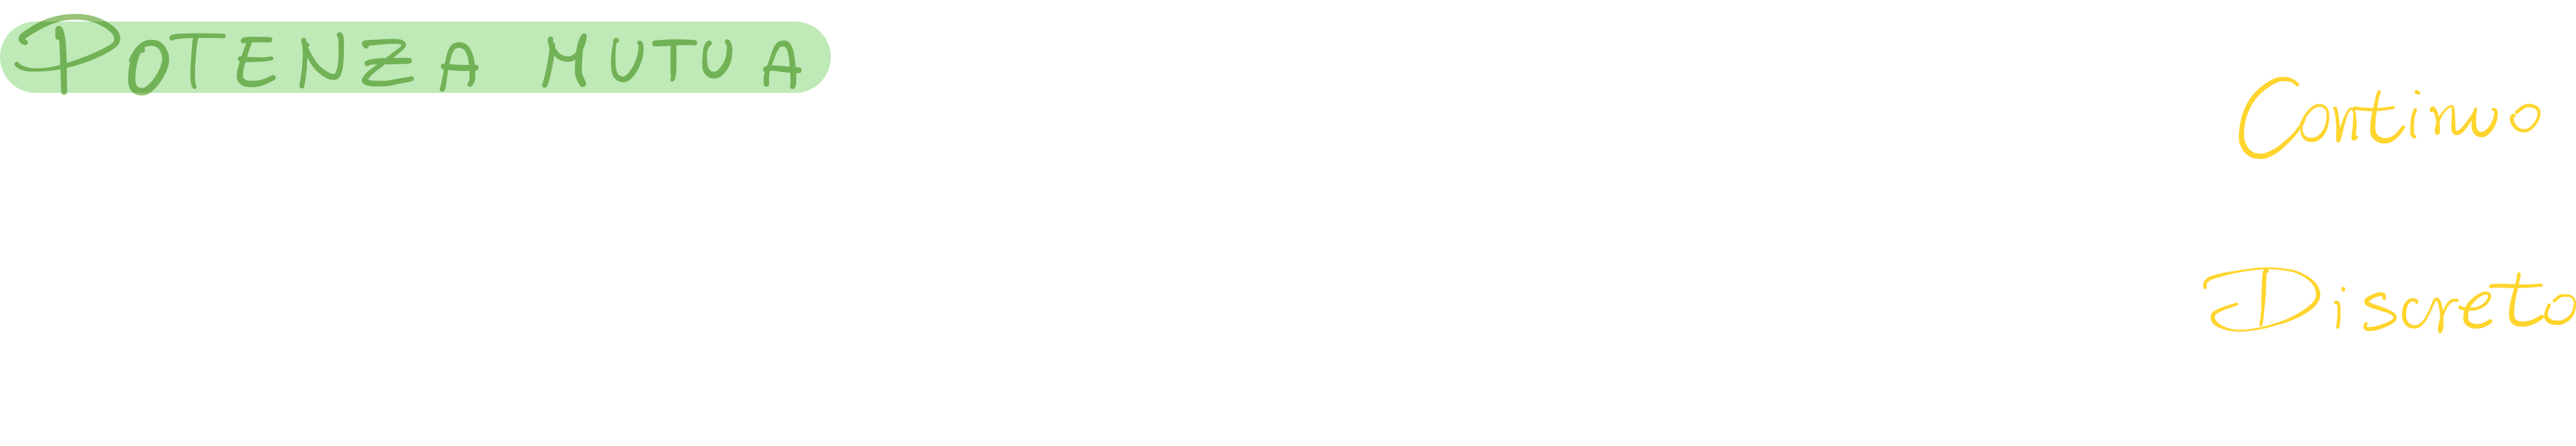 POTENZA MUTUA
Continuo
Discreto